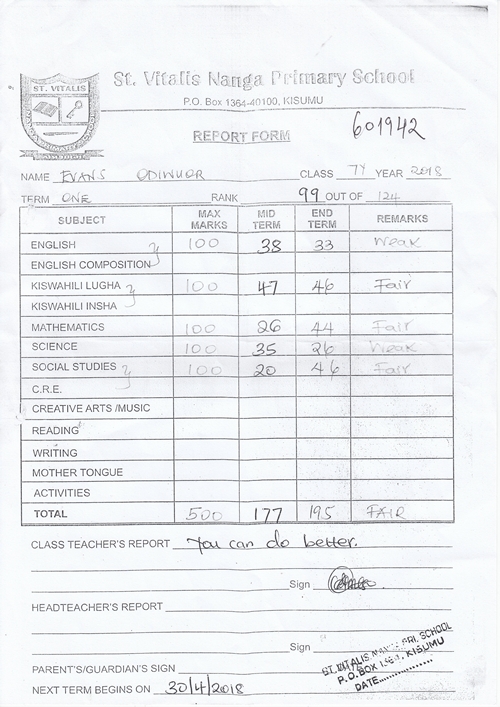 ST. VITALIS
St. Vitalis Nanga Primary School
P.O. Box 1364-40100, KISUMU
REPORT FORM
601942
NAME EVANS ODIWUOR CLASS 7Y YEAR 2018
TERM ONE RANK 99 OUT OF 124
SUBJECT MAX MARKS MID TERM END TERM REMARKS
ENGLISH 100 38 33 Weak
ENGLISH COMPOSITION
KISWAHILI LUGHA 100 47 46 Fair
KISWAHILI INSHA
MATHEMATICS 100 26 44 Fair
SCIENCE 100 35 26 Weak
SOCIAL STUDIES 100 20 46 Fair
C.R.E.
CREATIVE ARTS /MUSIC
READING
WRITING
MOTHER TONGUE
ACTIVITIES
TOTAL 500 177 195 FAIR
CLASS TEACHER'S REPORT You can do better.
Sign
HEADTEACHER'S REPORT
Sign
ST. VITALIS NANGA PRI. SCHOOL
P.O. BOX KISUMU
DATE
PARENT'S/GUARDIAN'S SIGN
NEXT TERM BEGINS ON 30/4/2018